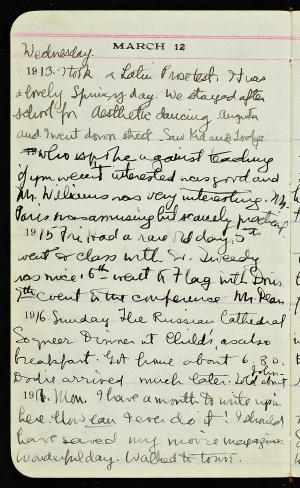 MARCH 12
Wednesday.
1913. Took a Latin Protest. It was
a lovely Springy day. We stayed after
school for Aesthetic dancing. Augusta
and I went down street. Saw Kit and Lodge.
who spoke against teaching
gym went interested was good and
Mr. Williams was very interesting. Mr.
Paris was amusing but scarcely practical.
1915 Fri. Had a rare old day. 5th
went to class with Sr. Tweedy
was nice. 6th went to Flag with Doris
7th went to the conference. Mr. Dean
1916. Sunday. The Russian Cathedral
Dinner at Childs, as also
breakfast. Got home about 6.30.
Dodie arrived much later. Told about John
Mon. I have a month to write up in
here. How can I ever do it! I should
have saved my movie magazines.
Wonderful day. Walked to town.